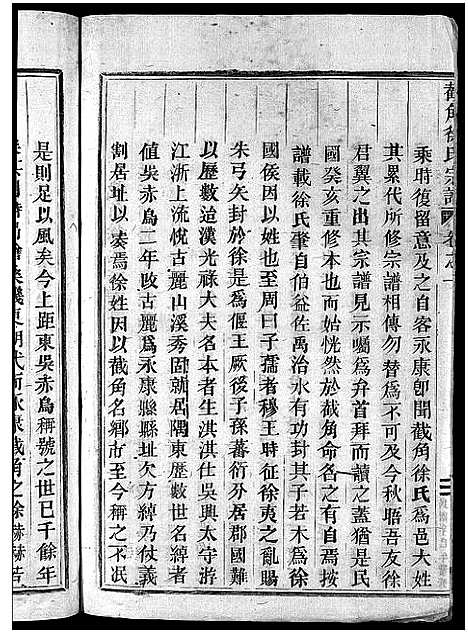 截角徐氏宗譜 卷之一
乘時復留意及之自客永康卽聞截角徐氏爲邑大姓
其累代所修宗譜相傳勿替爲不可及今秋晤吾友徐
君翼之出其宗譜見示囑爲弁首拜而讀之蓋猶是民
國癸亥重修本也而始恍然於截角命名之有自焉其
譜載徐氏肇自伯益佐禹治水有功封其子若木爲徐
國侯因以姓也至周曰子孺者穆王時征徐夷之亂賜
朱弓矢封於徐是爲偃王厥後子孫蕃衍外居郡國難
以歷數迨漢光祿大夫名本者生淇淇仕吳興太守游
江浙上流悅古麗山溪秀固就居隅東歷數世名
値吳赤烏二年改古麗爲永康縣縣址欠方綽乃仗義
割居址以奏焉徐姓因以截角名鄉市至今稱之不泯
是則足以風矣今上距東吳赤烏稱號之世已千餘年
更朝代而永康截角之徐赫赫若